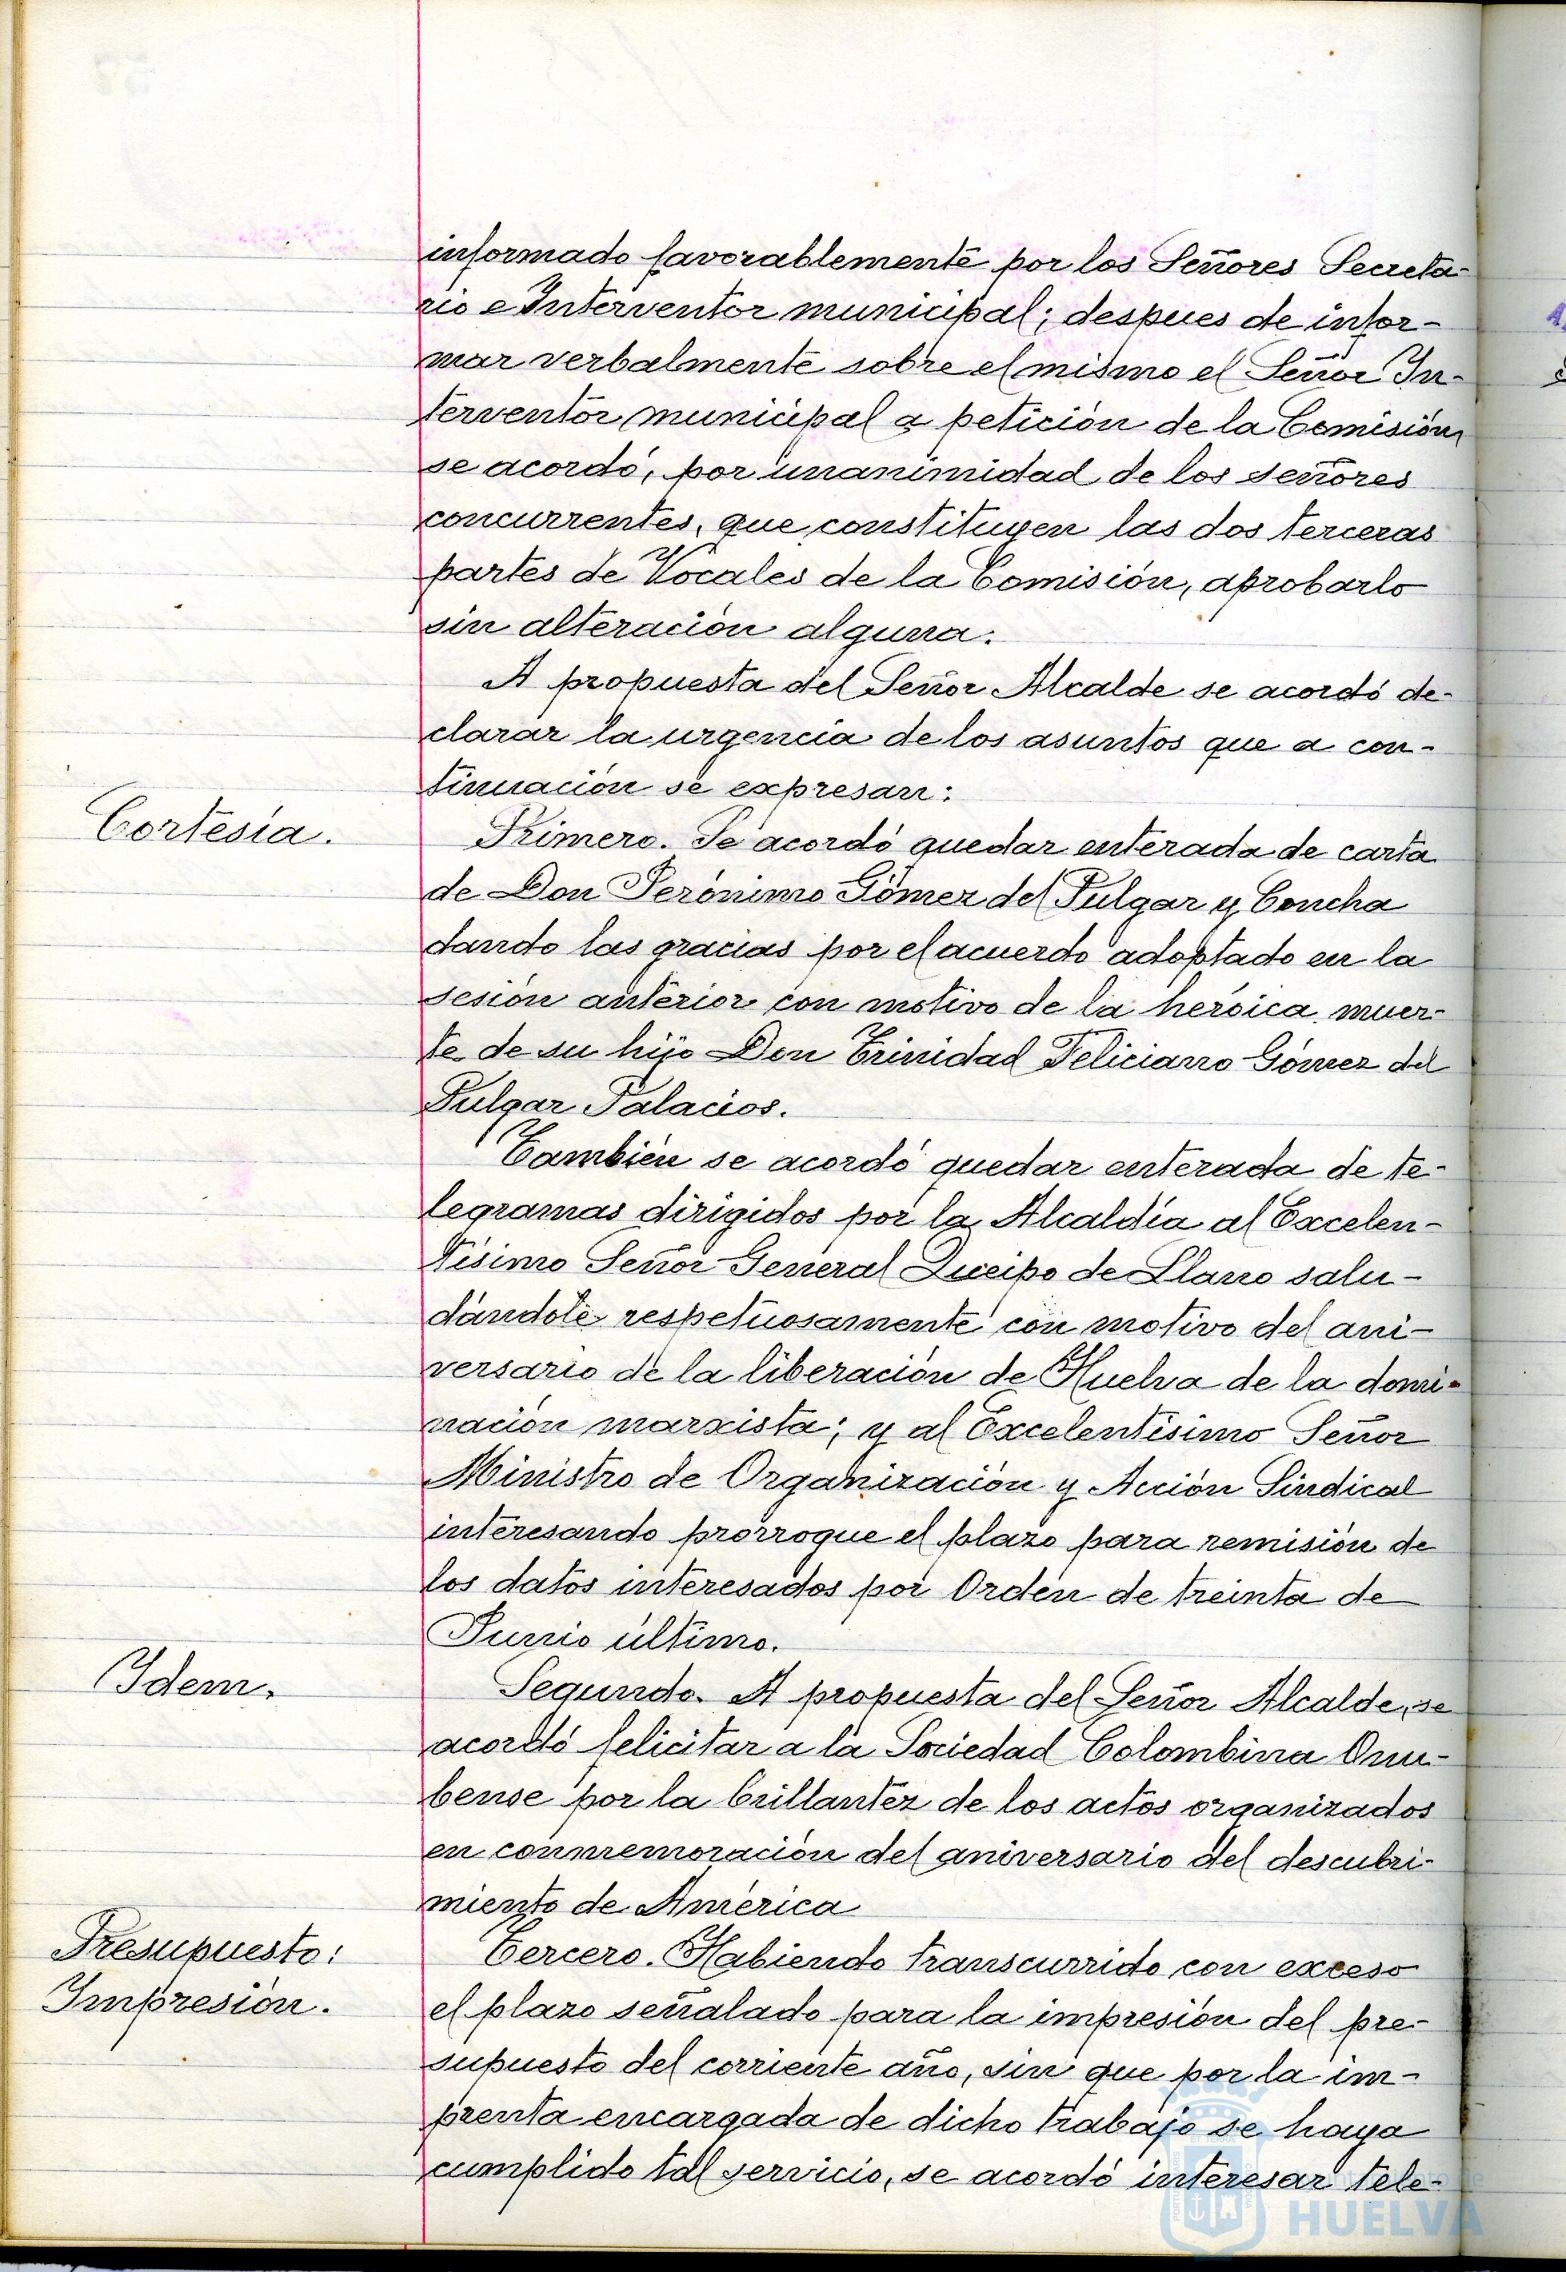 informado favorablemente por los Señores Secreta-
rio e Interventor municipal; despues de infor-
mar verbalmente sobre el mismo el Señor In-
terventor municipal a petición de la Comisión
se acordó, por unanimidad de los señores
concurrentes, que constituyen las dos terceras
partes de Vocales de la Comisión, aprobarlo
sin alteración alguna.
A propuesta del Señor Alcalde se acordó de-
clarar la urgencia de los asuntos que a con-
tinuación se expresan:
Cortesía.
Primero. Se acordó quedar enterada de carta
de Don Jerónimo Gómez del Pulgar y Concha
dando las gracias por el acuerdo adoptado en la
sesión anterior con motivo de la heróica muer-
te de su hijo Don Trinidad Feliciano Gómez del
Pulgar Palacios.
También se acordó quedar enterada de te-
legramas dirigidos por la Alcaldía al Excelen-
tísimo Señor General Queipo de Llano salu-
dándole respetuosamente con motivo del ani-
versario de la liberación de Huelva de la domi-
nación marxista; y al Excelentísimo Señor
Ministro de Organización y Acción Sindical
interesando prorrogue el plazo para remisión de
los datos interesados por Orden de treinta de
Junio último.
Idem.
Segundo. A propuesta del Señor Alcalde, se
acordó felicitar a la Sociedad Colombina Onu-
bense por la brillantez de los actos organizados
en conmemoración del aniversario del descubri-
miento de América
Presupuesto:
Impresión.
Tercero. Habiendo transcurrido con exceso
el plazo señalado para la impresión del pre-
supuesto del corriente año, sin que por la im-
prenta encargada de dicho trabajo se haya
cumplido tal servicio, se acordó interesar tele-
HUELVA